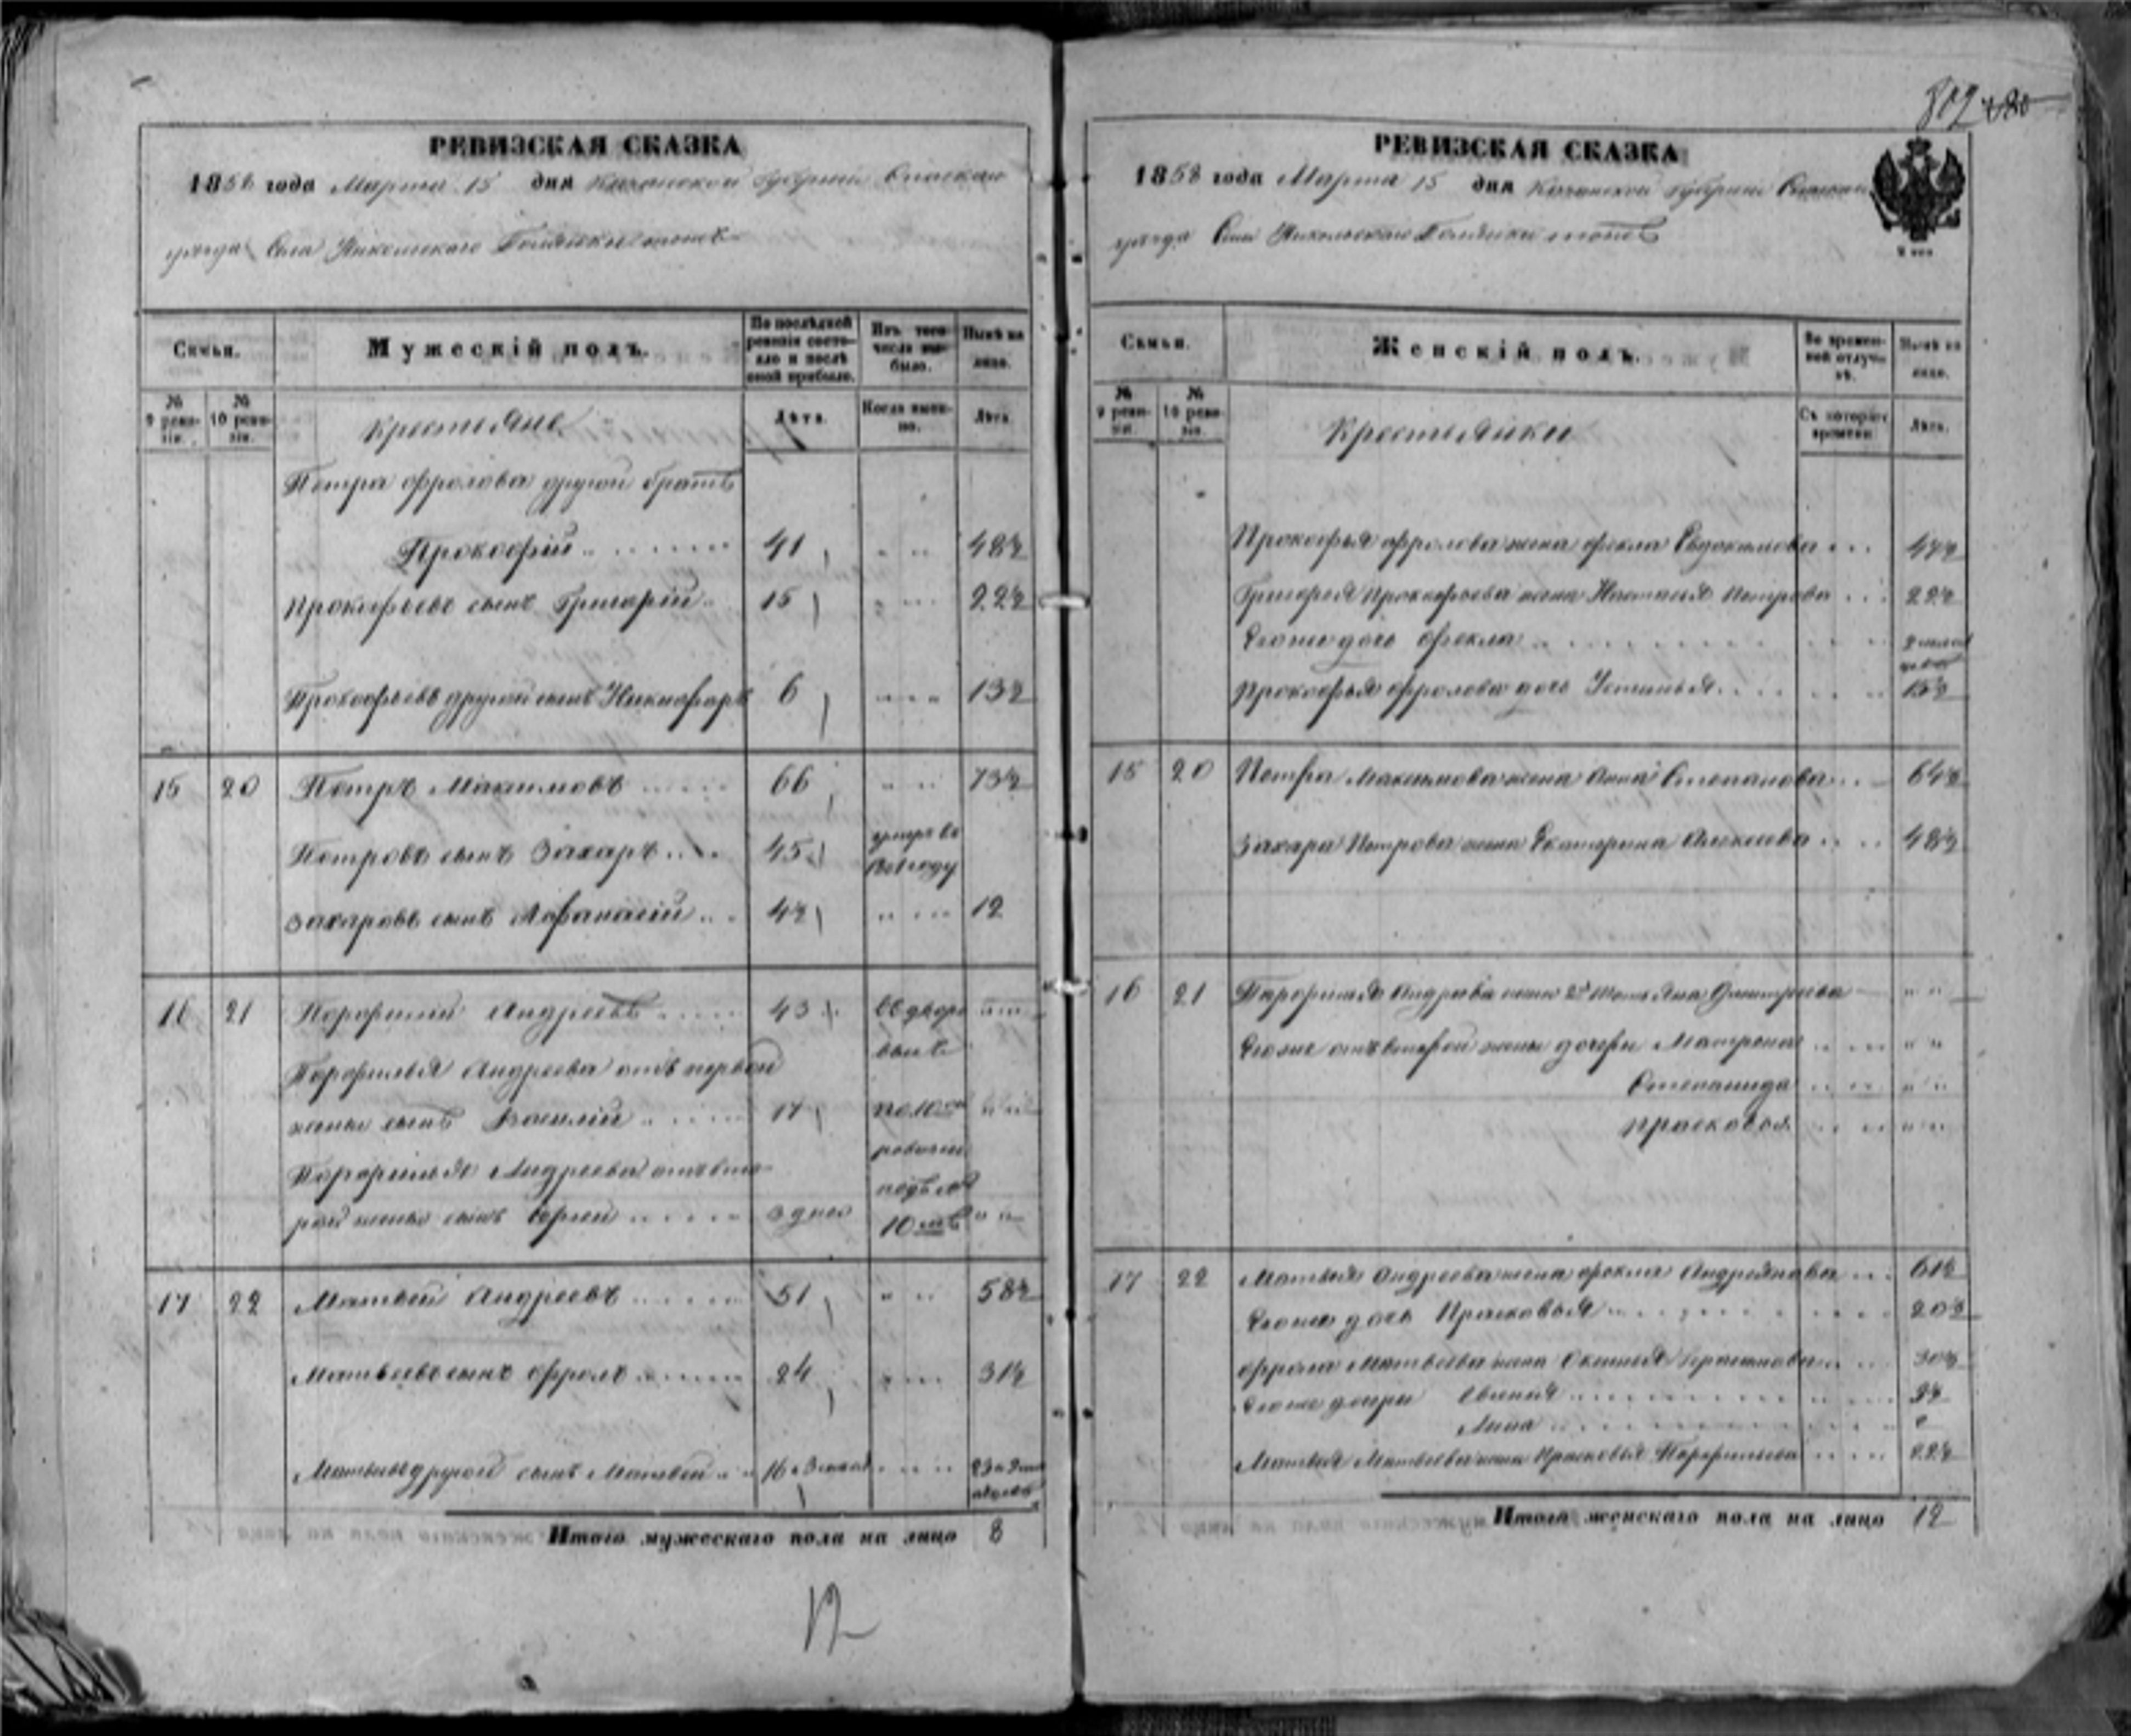 РЕВИЗСКАЯ СКАЗКА
1858 года Марта 15 дня Казанской Губернии Спаскаго
уезда Села Никольскаго тожъ
Семьи.
Мужескій полъ.
По послѣдней ревизіи состояло и послѣ оной прибыло.
Изъ того числа выбыло.
Нынѣ на лицо.
№ 9 ревизіи.
№ 10 ревизіи.
Крестьяне
Лѣта.
Когда именно.
Лѣта.
Петра Фролова другой братъ
Прокофій 41 48½
Прокофьевъ сынъ Григорій 15 22½
Прокофьевъ другой сынъ Никифоръ 6 13½
15 20 Петръ Максимовъ 66 73½
Петровъ сынъ Захаръ 45 умре въ году
Захаровъ сынъ Афанасій 12
16 21 Порфирій Андреевъ 43
Порфирья Андреева отъ первой
жены сынъ Василій 17 по 10й
ревизіи
Порфирья Андреева отъ вто-
рой жены сынъ Сергей 3 дней подъ №
10 мъ
17 22 Матвей Андреевъ 51 58½
Матвеевъ сынъ Фролъ 24 31½
Матвеевъ другой сынъ Матвей 16
Итого мужескаго пола на лицо 8
12
802
РЕВИЗСКАЯ СКАЗКА
1858 года Марта 15 дня Казанской Губерніи Спаскаго
уезда Села Никольскаго тожъ
Семьи.
Женскій полъ.
Во временной отлучкѣ.
Нынѣ на лицо.
№ 9 ревизіи.
№ 10 ревизіи.
Крестьянки
Съ котораго времени.
Лѣта.
Прокофья Фролова жена Фекла Евдокимова 47½
Григорья Прокофьева жена Настасья Петрова 22½
Ево же дочь Фекла
Прокофья Фролова дочь Устинья 15½
15 20 Петра Максимова жена Анна Степанова 64½
Захара Петрова жена Екатерина Алексеева 48½
16 21 Парфирья Андреева жена 2я Татьяна Дмитриева
Ево же отъ второй жены дочери Матрена
Степанида
Прасковья
17 22 Матвея Андреева жена Фекла Андреянова 61½
Ево же дочь Прасковья 20½
Фрола Матвеева жена Аксинья 30½
Ево же дочери
Анна
Матвея Матвеева жена Прасковья 22½
Итого женскаго пола на лицо 12